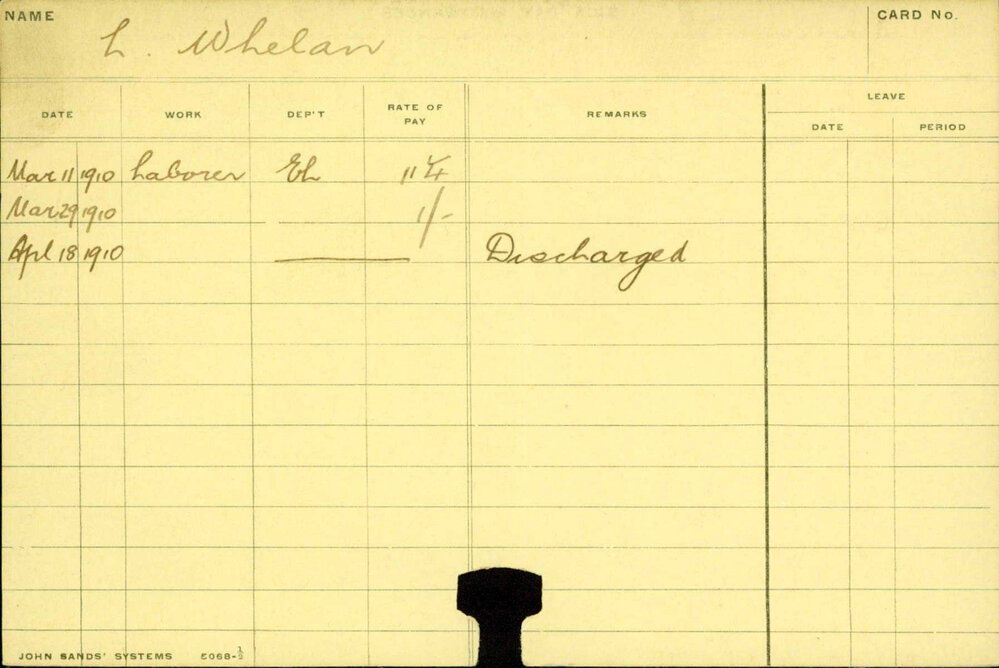 NAME
L. Whelan
CARD No.
DATE WORK DEP'T RATE OF PAY REMARKS LEAVE
DATE PERIOD
Mar 11 1910 Laborer EL 11¼
Mar 29 1910 1/-
Apl 18 1910 Discharged
JOHN SANDS' SYSTEMS 5068-½